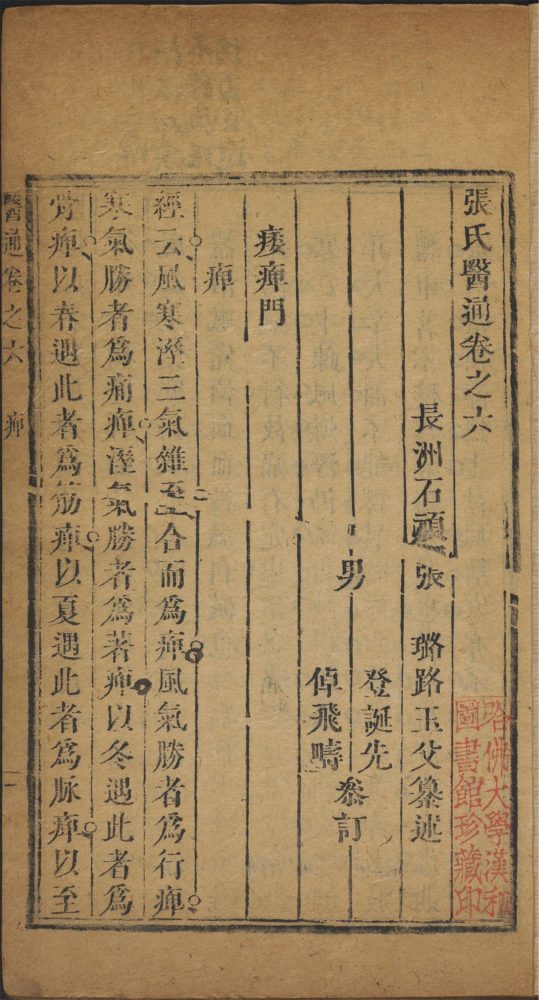 張氏醫通卷之六
長洲石頑張　璐路玉父纂述
男
登誕先
倬飛疇
叅訂
痿痺門
痺
經云風寒溼三氣雜至合而爲痺風氣勝者爲行痺
寒氣勝者爲痛痺溼氣勝者爲著痺以冬遇此者爲
骨痺以春遇此者爲筋痺以夏遇此者爲脉痺以至
醫通卷之六　痺　一
哈佛大學漢和
圖書館珍藏印